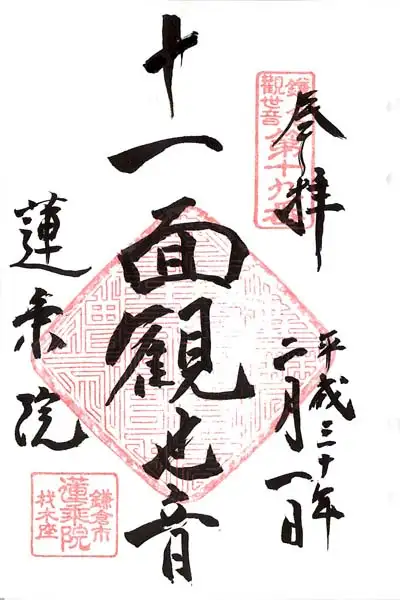 奉拝
平成三十年
二月一日
十一面観世音
蓮乗院
鎌
觀世音
第十九
鎌倉市
蓮乘院
材木座